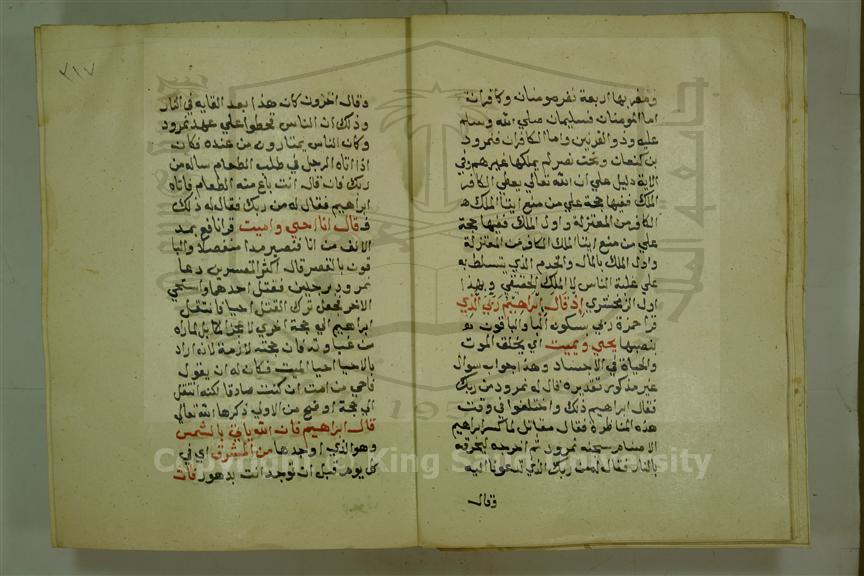 ومغربها اربعة نفر مومنان وكافران
اما المومنان فسليمان صلي الله وسلم
عليه وذو القرنين واما الكافران فنمرود
بن كنعان وبخت نصر لم يملكها غيرهم وفي
الاية دليل علي ان الله تعالي يعطي الكافر
الملك ففيها حجة علي من منع ايتا الملك
الكافر من المعتزلة واول الملك ففيها حجة
علي من منع ايتا الملك الكافر من المعتزلة
واول الملك بالمال والخدم الذي يتسلط به
علي غلبة الناس لا الملك الحقيقي وبهذا
اول الزمخشري إذ قال إبراهيم ربي الذي
قرا حمزة ربي بسكون اليا والباقون
بنصبها يحيي ويميت اي يخلق الموت
والحياة في الاجساد وهذا جواب سوال
غير مذكور تقديره قال له نمرود من ربك
فقال ابراهيم ذلك واختلفوا في وقت
هذه المناظرة فقال مقاتل لما كسر ابراهيم
الاصنام سجنه نمرود ثم اخرجه ليحرقه
بالنار فقال له من ربك الذي تدعونا اليه
وقال
٣١٧
وقال اخرون كان هذا بعد القايه في النار
وذلك ان الناس قحطوا علي عهد نمرود
وكان الناس يمتارون من عنده فكان
اذا اتاه الرجل في طلب الطعام ساله من
ربك فان قال انت باع منه الطعام فاتاه
ابراهيم فقال له من ربك فقال له ذلك
فـ قال انا احيي واميت قرا نافع بمد
الالف من انا فتصير مدا منفصلا والبا
قون بالقصر قال اكثر المفسرين دعا
نمرود برجلين فقتل احدهما واستحيي
الاخر فجعل ترك القتل احيا فانتقل
ابراهيم الي حجة اخري لا عجزا بل لما راه
من غباوته فان حجته لازمة لانه اراد
بالاحيا احيا الميت فكان له ان يقول
فاحي من امت ان كنت صادقا لكنه انتقل
الي حجة اوضح من الاولي ذكرها الله تعالي
قال ابراهيم فان الله ياتي بالشمس
وهو الذي اوجدها من المشرق اي في
كل يوم قبل ان توجد انت بدهور فات
Copyright © King Saud University
1957